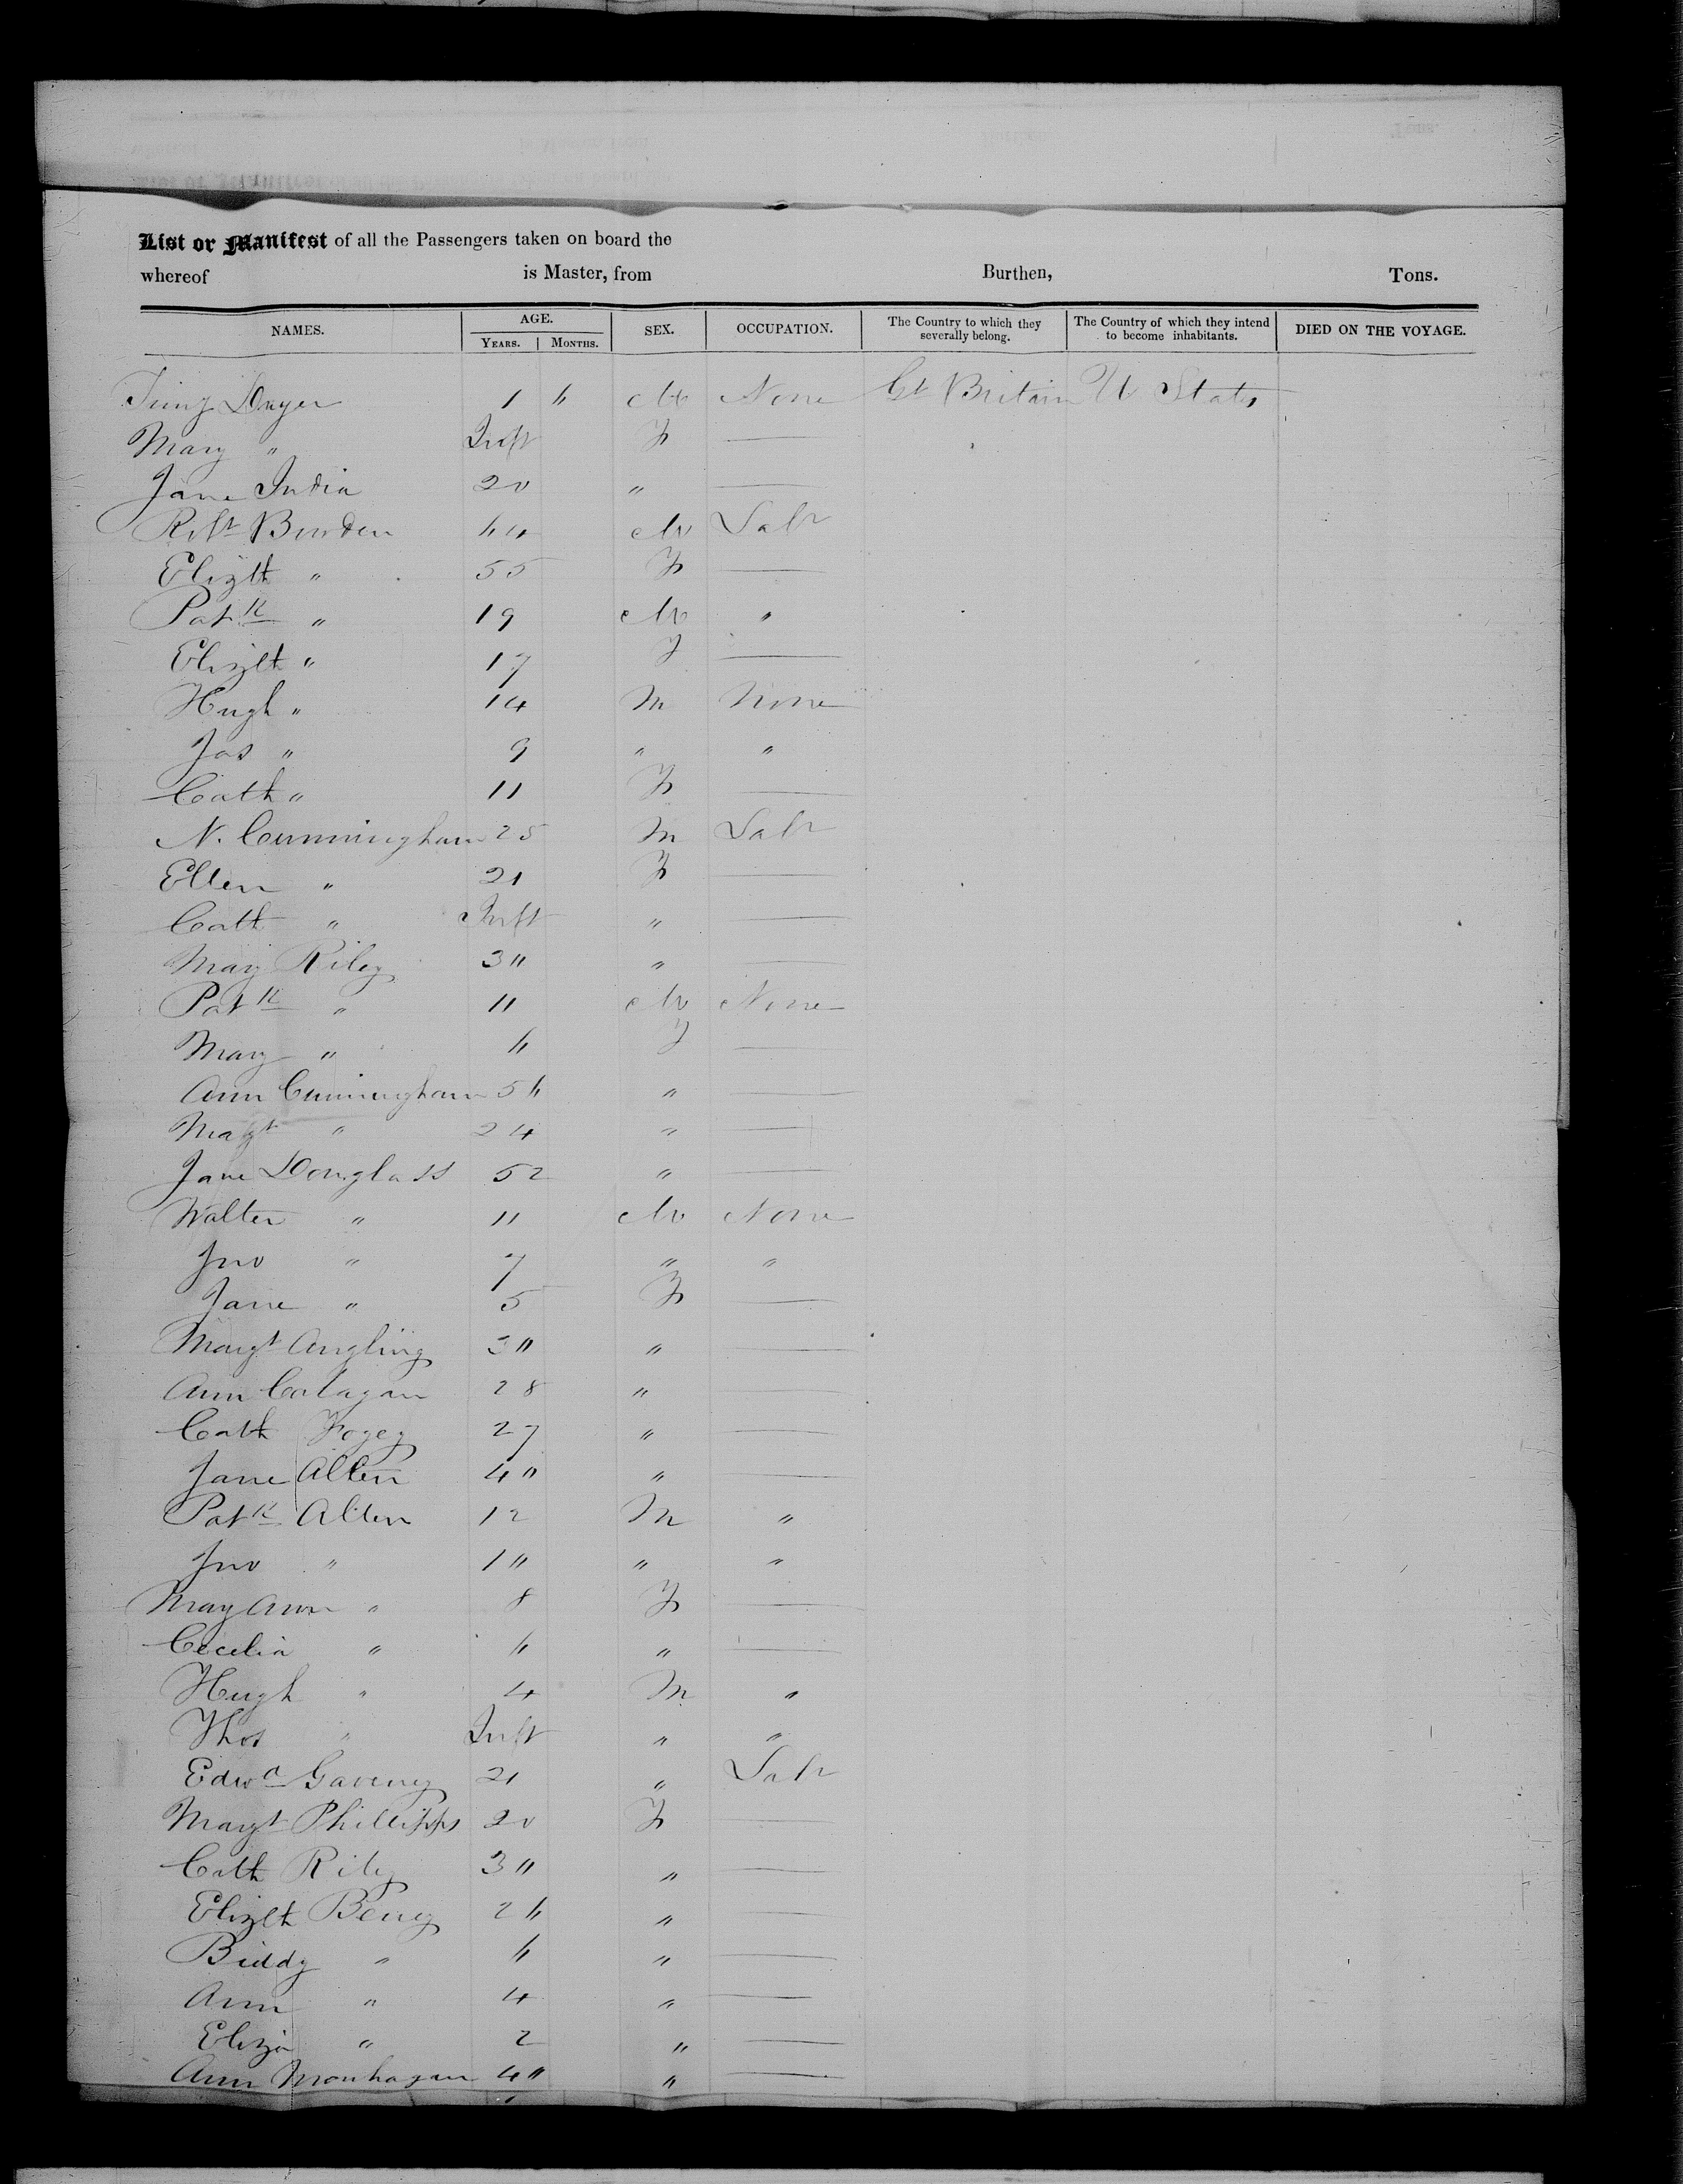 List or Manifest of all the Passengers taken on board the
whereof is Master, from Burthen, Tons.
NAMES. AGE. SEX. OCCUPATION. The Country to which they severally belong. The Country of which they intend to become inhabitants. DIED ON THE VOYAGE.
YEARS. MONTHS.
Dwyer 1 " M None Gt Britain U States
Mary " Inft F —
Jane India 20 " —
Robt Bowden 44 M Labr
Elizth " 55 F —
Patk " 19 M "
Elizth " 17 F —
Hugh " 14 M None
Jas " 9 " "
Cath " 11 F —
N. Cunningham 25 M Labr
Ellen " 21 F —
Cath " Inft " —
Mary Riley 3" " —
Patk " 11 M None
Mary " 6 F —
Ann Cunningham 56 " —
Magt " 24 " —
Jane Douglass 52 " —
Walter " 11 M None
Jno " 7 " "
Jane " 5 F —
Margt Angling 3" " —
Ann Calagan 28 " —
Cath Fogey 27 " —
Jane Allen 4" " —
Patk Allen 12 M "
Jno " 1" " "
Mary Ann " 8 F —
Cecelia " 6 " —
Hugh " 4 M "
Thos " Inft " "
Edwd Gaveney 21 " Labr
Margt Phillipps 20 F —
Cath Rily 3" " —
Elizth Berry 26 " —
Biddy " 6 " —
Ann " 4 " —
Eliza " 2 " —
Ann Monhagan 4" " —